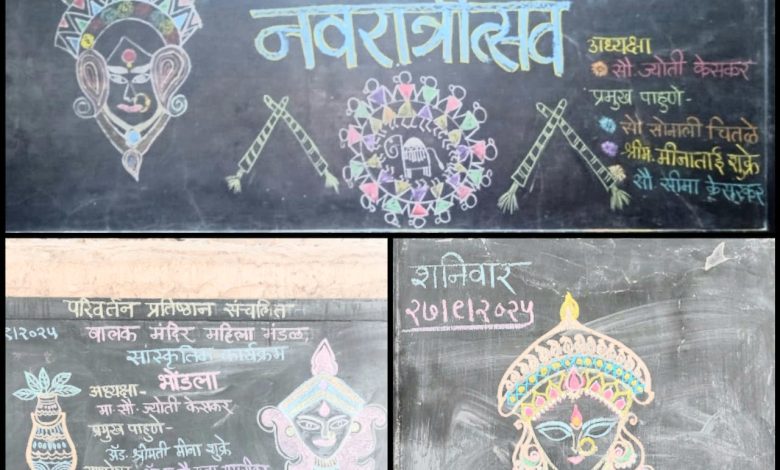 नवरात्रौत्सव
अध्यक्षा
सौ ज्योती केसकर
प्रमुख पाहुणे-
सौ सोनाली चितळे
श्रीम. मीनाताई शुक्रे
सौ सीमा केसुरकर
परिवर्तन प्रतिष्ठान संचलित
बालक मंदिर महिला मंडळ,
सांस्कृतिक कार्यक्रम
भोंडला
अध्यक्षा-
मा सौ ज्योती केसकर
प्रमुख पाहुणे-
ॲड श्रीमती मीना शुक्रे
शनिवार
२७/९/२०२५